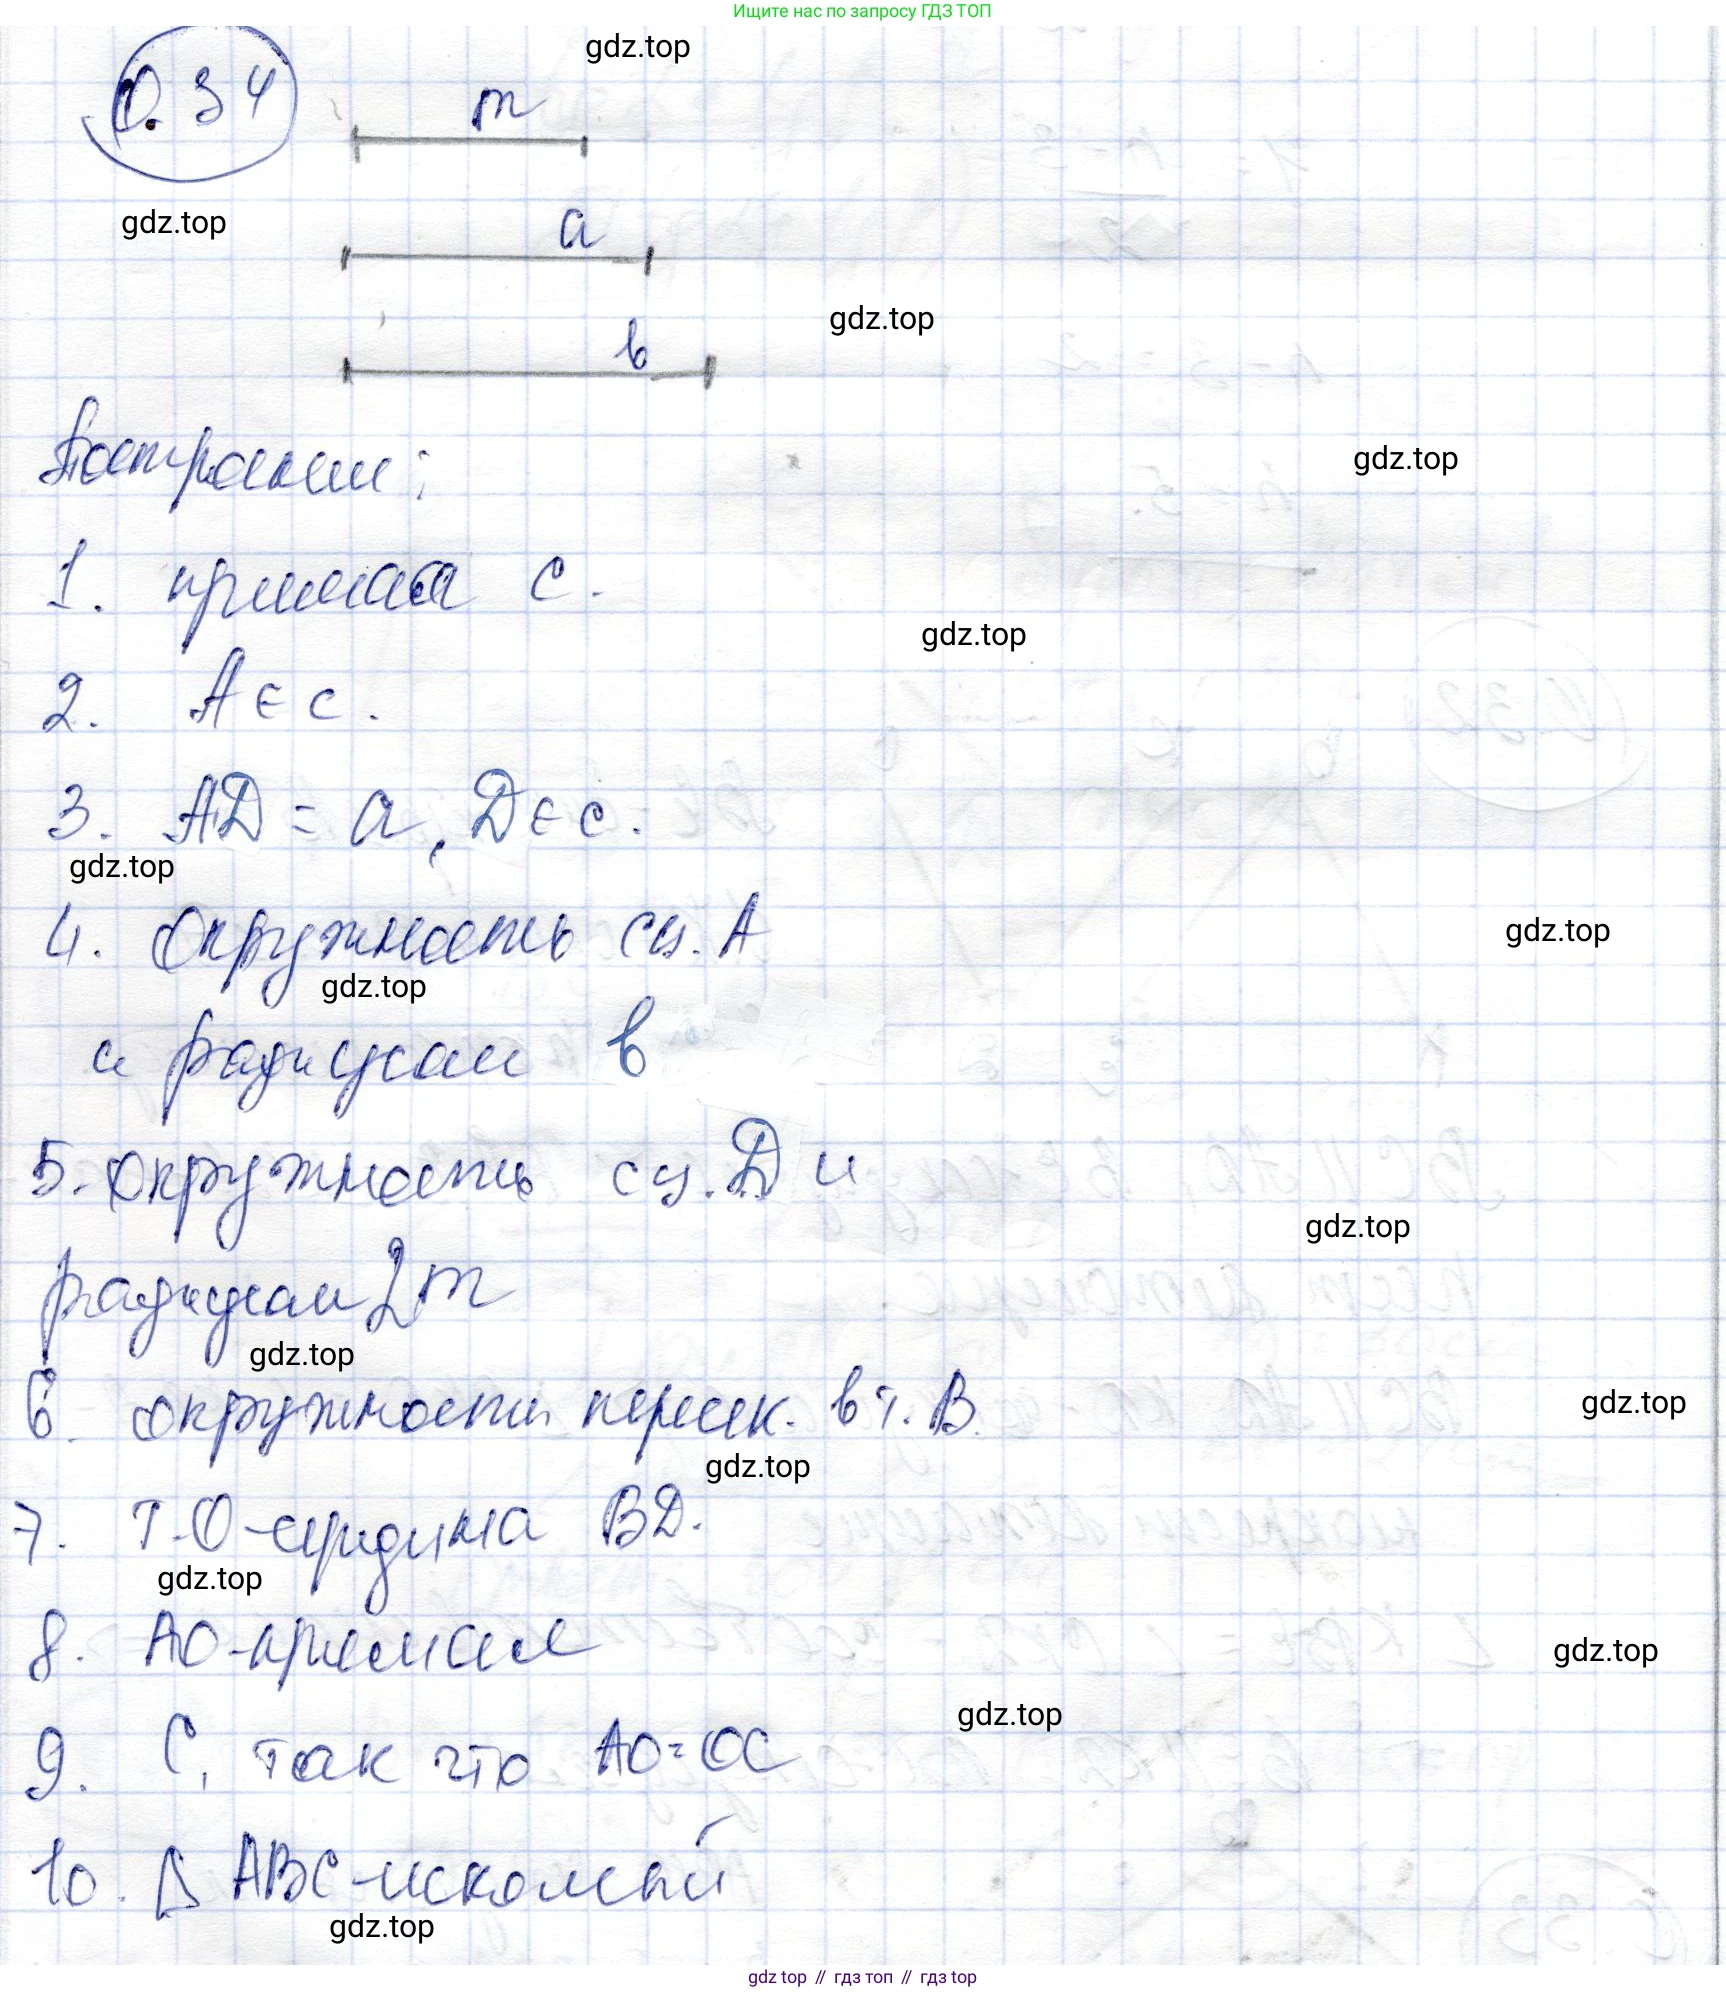 Ищите нас по запросу ГДЗ ТОП
gdz.top
0.34
m
gdz.top
a
gdz.top
b
Построим:
gdz.top
1. прямая c.
gdz.top
2. A ∈ c.
3. AD = a, D ∈ c.
gdz.top
4. Окружность с ц. A
gdz.top
gdz.top
и радиусом b
5. Окружность с ц. D и
gdz.top
радиусом 2m
gdz.top
6. окружности пересек. в т. B.
gdz.top
gdz.top
7. т. O - середина BD.
gdz.top
8. AO - прямая
gdz.top
gdz.top
9. C, так что AO = OC
10. Δ ABC - искомый
gdz.top
gdz top // гдз топ // гдз top